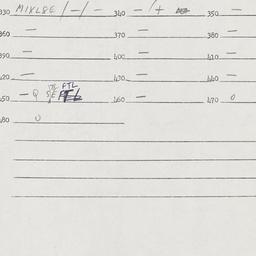 330 MIKLÓE / - / - 340 - / + 350 -
360 - 370 - 380 -
390 - 400 - 410 -
420 - 430 - 440 -
450 - Q PTL 460 - 470 0
480 0